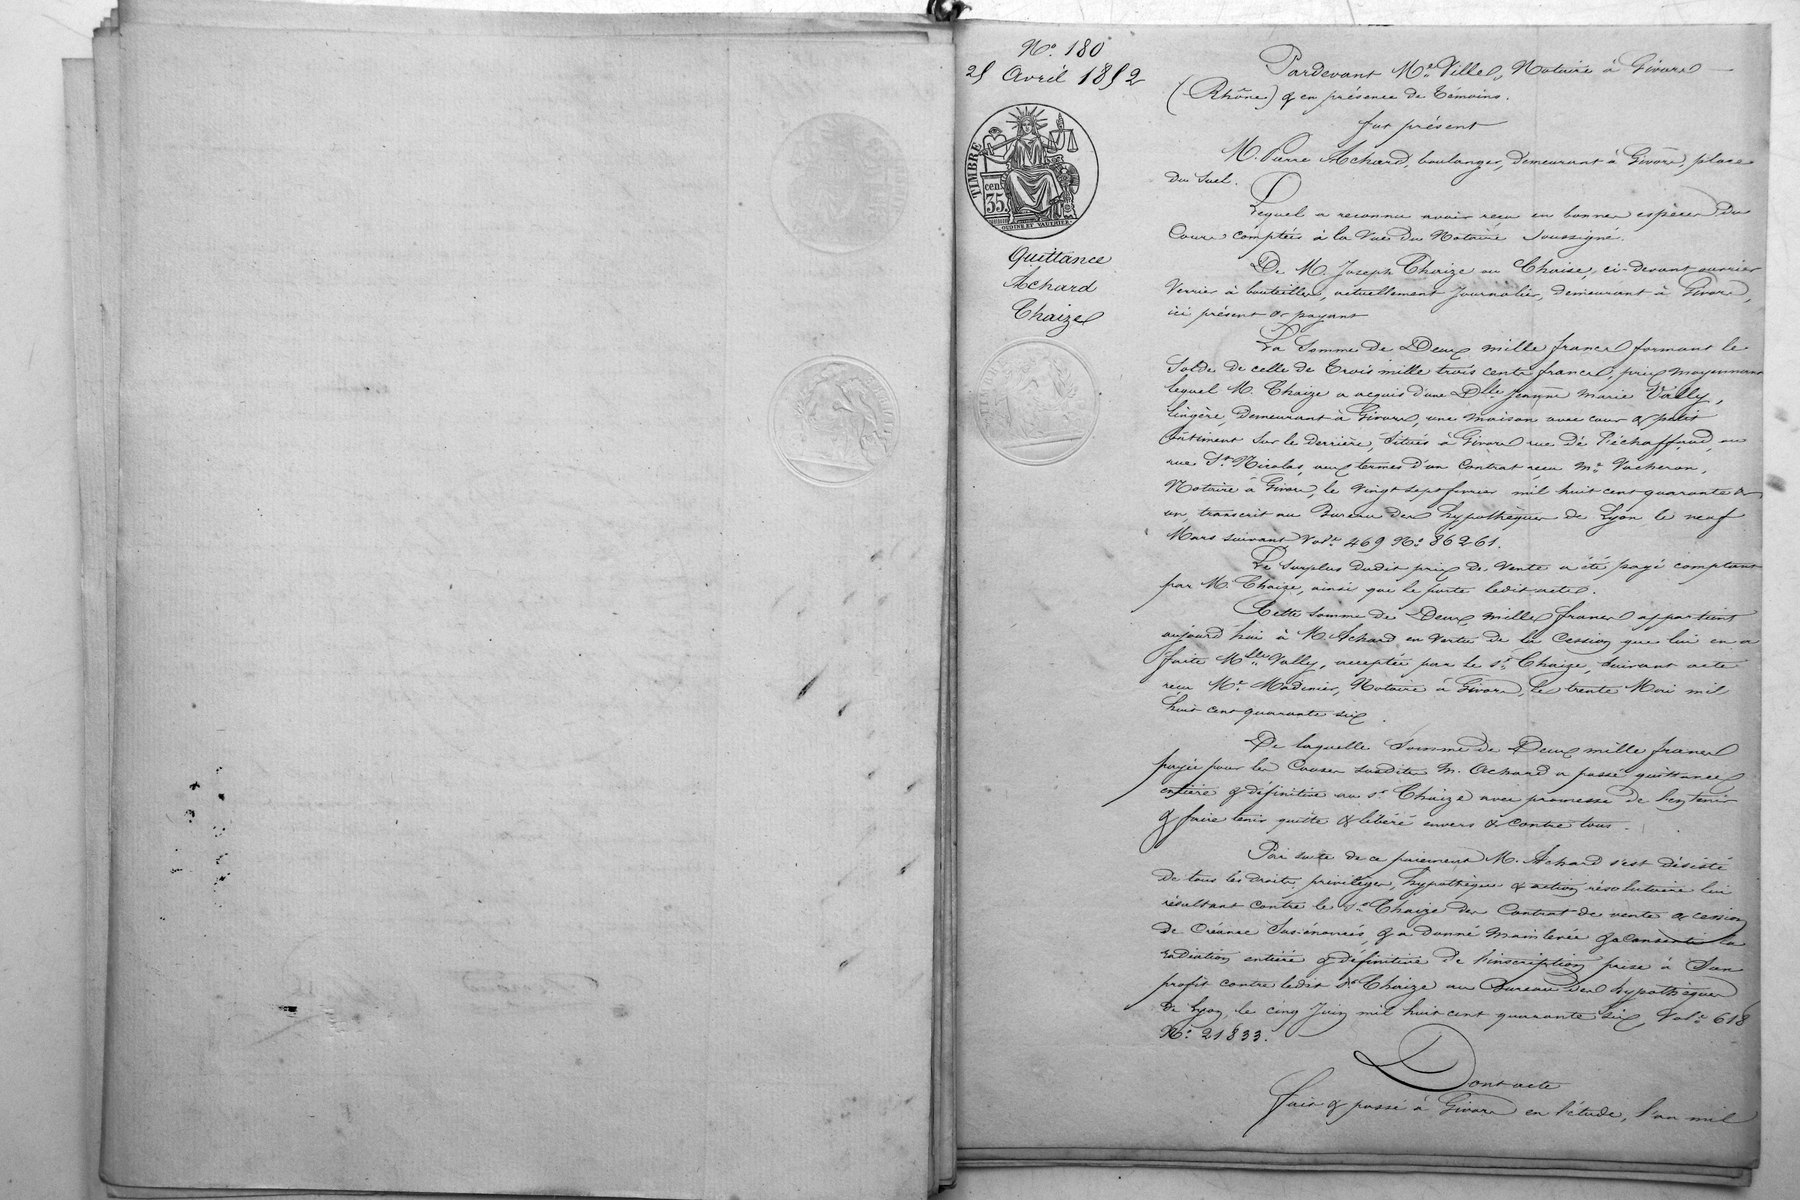 N.º 180
25 Avril 1852
TIMBRE
cen.
35.
OUDINÉ ET VAUTHIER
Quittance
Achard
Chaize
Pardevant Me. Ville, Notaire à Givors
(Rhône) & en présence de témoins.
fut présent
M. Pierre Achard, boulanger, demeurant à Givors, place
du Suel.
Lequel a reconnu avoir reçu en bonnes espèces du
Cours comptées à la Vue du Notaire soussigné.
De M. Joseph Chaize ou Chaise, ci-devant ouvrier
Verrier à bouteilles, actuellement Journalier, demeurant à Givors,
ici présent & payant
La Somme de Deux mille francs formant le
Solde de celle de Trois mille trois cents francs, prix moyennant
lequel M. Chaize a acquis d'une Dlle Jeanne Marie Vally,
lingère, demeurant à Givors, une maison avec cour & petit
bâtiment sur le derrière, Situés à Givors rue de l'échaffaud, ou
rue St. Nicolas, aux termes d'un Contrat reçu Me. Vacheron,
Notaire à Givors, le Vingt sept fevrier mil huit cent quarante &
un, transcrit au Bureau des hypothèques de Lyon le neuf
Mars suivant Vol.e 469 N.º 86261.
Le surplus dudit prix de Vente a été payé comptant
par M. Chaize, ainsi que le porte ledit acte.
Cette somme de Deux mille francs appartient
aujourd'hui à M. Achard en Vertu de la Cession que lui en a
faite Mlle. Vally, acceptée par le sr. Chaize, Suivant acte
reçu Me. Madinier, Notaire à Givors, le trente Mai mil
huit cent quarante six.
De laquelle Somme de Deux mille francs
payée pour les Causes susdites M. Achard a passé quittance
entière & définitive au sr Chaize avec promesse de l'en tenir
& faire tenir quitte & libéré envers & contre tous.
Par suite de ce paiement M. Achard s'est désisté
de tous les droits, privilèges, hypothèques & action résolutoire lui
résultant contre le sr. Chaize des Contrat de vente & cession
de Créance Sus-énoncés, & a donné main levée & a consenti la
radiation entière & définitive de l'inscription prise à Son
profit contre ledit sr. Chaize au Bureau des hypothèques
de Lyon, le cinq Juin mil huit cent quarante six, Vol.e 618
N.º 21833.
Dont acte
fait & passé à Givors en l'étude, l'an mil